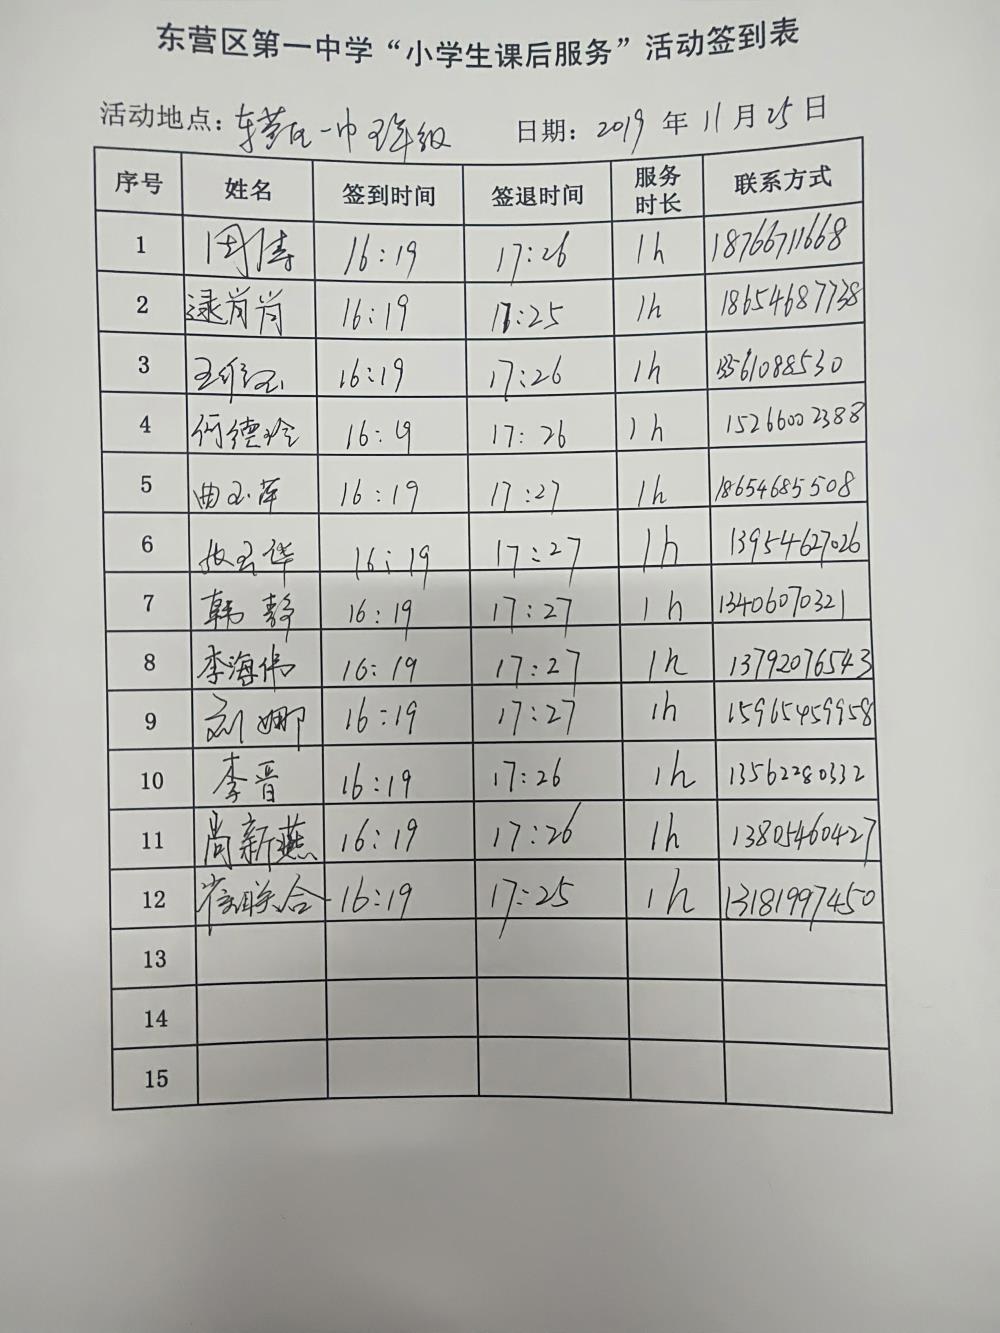 东营区第一中学“小学生课后服务”活动签到表
活动地点：东营区一中五年级 日期：2019年11月25日
序号 姓名 签到时间 签退时间 服务时长 联系方式
1 周涛 16:19 17:26 1h 18766711668
2 逯肖肖 16:19 17:25 1h 18654687738
3 16:19 17:26 1h 13561088530
4 何德玲 16:19 17:26 1h 15266002388
5 曲玉萍 16:19 17:27 1h 18654685508
6 16:19 17:27 1h 13954627026
7 韩静 16:19 17:27 1h 13406070321
8 李海伟 16:19 17:27 1h 13792076543
9 刘娜 16:19 17:27 1h 15965459958
10 李晋 16:19 17:26 1h 13562280332
11 尚新燕 16:19 17:26 1h 13805460427
12 崔联合 16:19 17:25 1h 13181997450
13
14
15